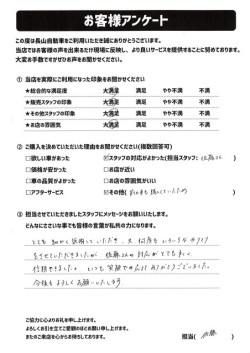 お客様アンケート
この度は長山自動車をご利用いただき誠にありがとうございます。
当店ではお客様の声を出来るだけ現場に反映し、より良いサービスを提供することに努めております。
大変お手数ですがぜひお声をお聞かせください。
① 当店を実際にご利用になった印象をお聞かせください
★総合的な満足度 大満足 満足 やや不満 不満
★販売スタッフの印象 大満足 満足 やや不満 不満
★その他スタッフの印象 大満足 満足 やや不満 不満
★お店の雰囲気 大満足 満足 やや不満 不満
② ご購入を決めていただいた理由をお聞かせください(複数回答可)
□欲しい車があった ☑スタッフの対応がよかった(担当スタッフ: 佐藤さん)
□価格が安かった □お店が近い
□車の品質がよかった □お店の雰囲気がいい
□アフターサービス ☑その他(
③ 担当させていただきましたスタッフにメッセージをお願いいたします。
どんなにささいな事でも皆様の言葉が私共の力になります。
とても 細かく 説明していただき、又 何度も
をさせていただきましたが 佐藤さんの対応がとても良く
信頼できました。いつも 笑顔で ありがとうございました。
今後も よろしく お願いいたします
ご協力に心よりお礼を申し上げます。
よろしくお引き立てご愛顧のほどお願い申し上げます。
またのご来店を心からお待ちしております。
担当( 佐藤 )